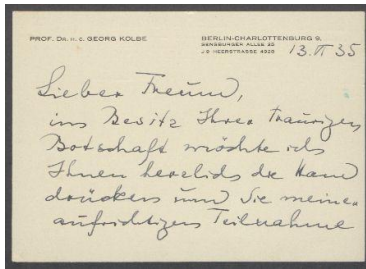 PROF. DR. H. C. GEORG KOLBE
BERLIN-CHARLOTTENBURG 9,
SENSBURGER ALLEE 25
J 9 HEERSTRASSE
13. II 35
Lieber Freund,
im Besitz Ihrer traurigen
Botschaft möchte ich
Ihnen herzlichs die Hand
drücken und Sie meiner
aufrichtigen Teilnahme